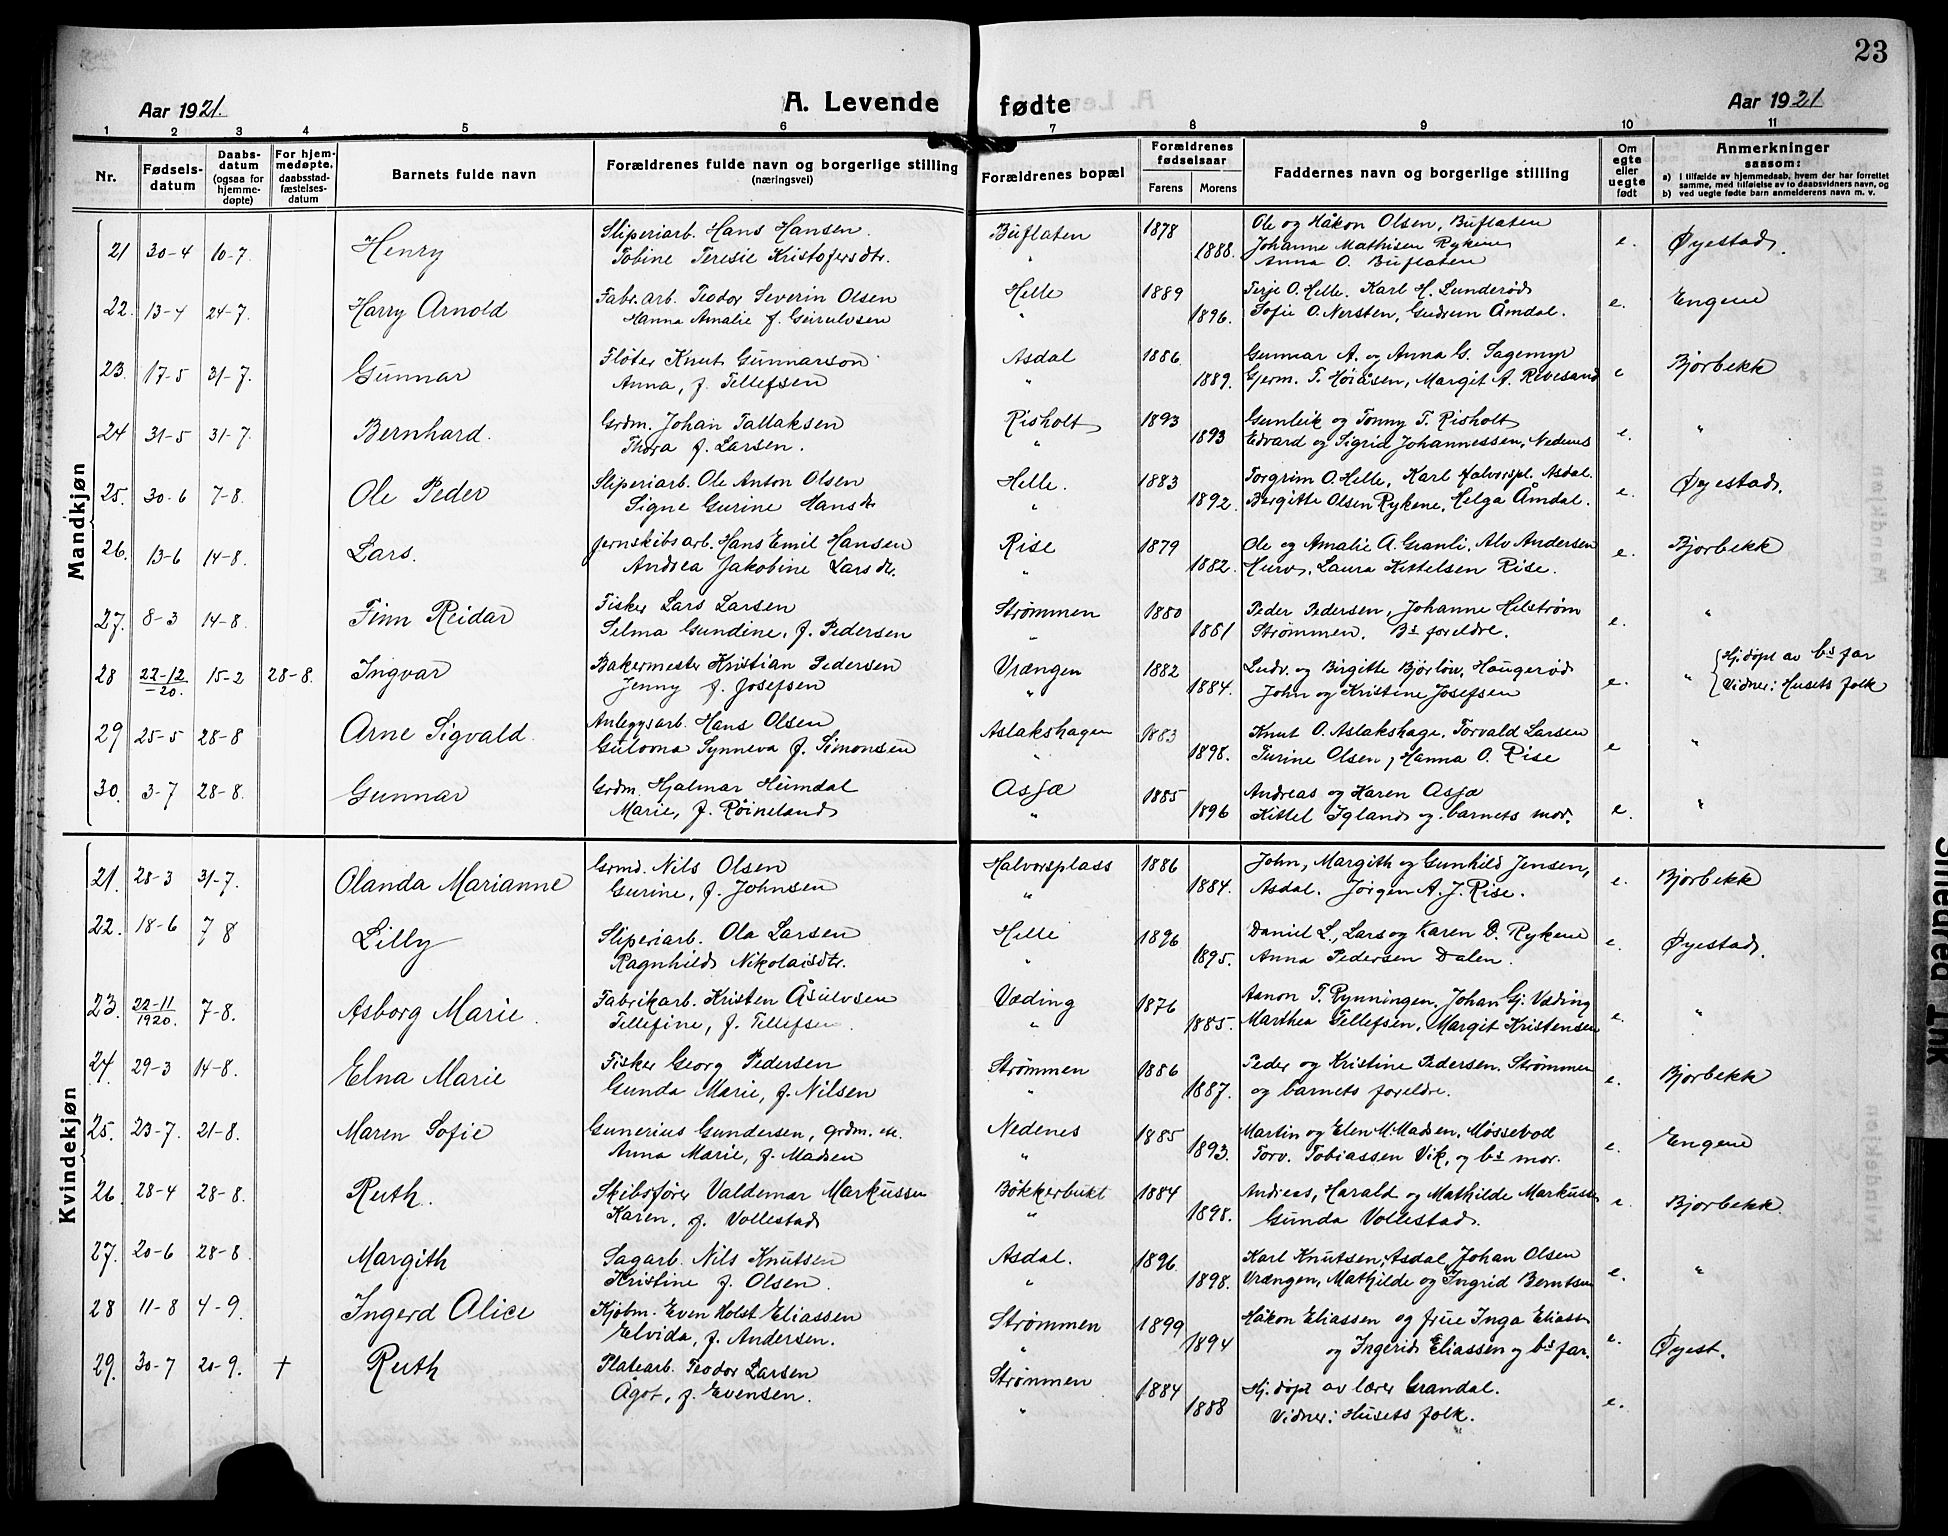 23
Aar 1921. A. Levende fødte Aar 1921
1 2 3 4 5 6 7 8 9 10 11
Nr. Fødsels-datum Daabs-datum (ogsaa for hjemme-døpte) For hjem-medøpte, daabsstad-fæstelses-datum Barnets fulde navn Forældrenes fulde navn og borgerlige stilling (næringsvei) Forældrenes bopæl Forældrenes fødselsaar Farens Morens Faddernes navn og borgerlige stilling Om egte eller uegte født Anmerkninger saasom: a) I tilfælde av hjemmedaab, hvem der har forrettet samme, med tilføielse av to daabsvidners navn, og b) ved uegte fødte barn anmelderens navn m. v.
Mandkjøn
21 30-4 10-7. Henry Sliperiarb. Hans Hansen. Buflaten 1878 Ole og Håkon Olsen, Buflaten e. Øyestad.
Tobine Teresie Kristofersdtr. " 1888. Johanne Mathisen Rykene
Anna O. Buflaten
22. 13-4 24-7. Harry Arnold Fabr. arb. Teodor Severin Olsen Helle 1889 Terje O. Helle. Karl H. Lunderød e. Engene
Hanna Amalie f. Geirulvsen " 1896. Sofie O. Nersten, Gudrun Åmdal.
23. 17-5 31-7. Gunnar Fløter Knut Gunnarson Asdal 1886 Gunnar A. og Anna G. Sagemyr e Bjorbekk
Anna, f. Tellefsen " 1889. Gjerm. T. Høiåsen, Margit A. Revesand
24 31-5 31-7. Bernhard. Grdm. Johan Tallaksen Risholt 1893 Gunleik og Tonny T. Risholt e. "
Thora f. Larsen. " 1893 Edvard og Sigrid Johannessen, Nedenes
25. 30-6 7-8. Ole Peder Sliperiarb. Ole Anton Olsen Helle. 1883 Torgrim O. Helle, Karl Halvorspl. Asdal. e. Øyestad.
Signe Gurine Hansdtr " 1892. Bergitte Olsen Rykene, Helga Åmdal.
26. 13-6 14-8. Lars. Jernskibsarb. Hans Emil Hansen Rise 1879 Ole og Amalie A. Granli, Alv Andersen e. Bjorbekk
Andrea Jakobine Larsdtr. " 1882. Hurv, Laura Kittelsen Rise.
27. 8-3 14-8. Finn Reidar Fisker Lars Larsen Strømmen 1880 Peder Pedersen, Johanne Helstrøm e. "
Selma Gundine, f. Pedersen " 1881 Strømmen. Bs foreldre.
28 22-12 -20. 15-2 28-8. Ingvar Bakermester Kristian Pedersen Vrængen 1882 Ludv. og Birgitte Bjorløv, Haugerød e. " Hj. døpt av bs far
Jenny f. Josefsen " 1884. John og Kristine Josefsen Vidner: Husets folk
29 25-5 28-8 Arne Sigvald. Anleggsarb. Hans Olsen Aslakshagen 1883 Knut O. Aslakshage, Torvald Larsen e "
Guloma Synneva f. Simonsen " 1898. Turine Olsen, Hanna O. Rise
30. 3-7 28-8. Gunnar Grdm. Hjalmar Heimdal Asjæ 1885 Andreas og Karen Asjæ e. "
Marie, f. Røineland " 1896 Kittel Igland og barnets mor.
Kvindekjøn
21. 28-3 31-7. Olanda Marianne Grmd. Nils Olsen Halvorsplass 1886 John, Margith og Gunhild Jensen, e. Bjorbekk
Gurine, f. Johnsen " 1884. Asdal. Jørgen A. J. Rise.
22. 18-6 7-8 Lilly Sliperiarb. Ola Larsen Helle 1896 Daniel L., Lars og Karen D. Rykene e. Øyestad.
Ragnhild Nikolaisdtr. " 1895. Anna Pedersen Dalen.
23. 22-11 1920. 7-8. Asborg Marie. Fabrikarb. Kristen Åsulvsen Væding 1876 Aanon T. Rynningen, Johan Gj. Væding e. "
Tellefine, f. Tellefsen. " 1885. Marthea Tellefsen, Margit Kristensen
24. 29-3 14-8. Elna Marie Fisker Georg Pedersen Strømmen 1886 Peder og Kristine Pedersen. Strømmen e. Bjorbekk
Gunda Marie, f. Nilsen " 1887. og barnets foreldre.
25. 23-7. 21-8. Maren Sofie Gunerius Gundersen, grdm. etc. Nedenes 1885 Martin og Elen M. Madsen. Møssebod e. Engene
Anna Marie, f. Madsen " 1893. Torv. Tobiassen Vik, og bs mor.
26 28-4 28-8. Ruth. Skibsfører Valdemar Markussen Bøkkerbukt 1884 Andreas, Harald og Mathilde Markussen e. Bjorbekk.
Karen, f. Vollestad " 1898. Gunda Vollestad.
27. 20-6 28-8 Margith Sagarb. Nils Knutsen Asdal. 1896 Karl Knutsen, Asdal, Johan Olsen e. "
Kristine f. Olsen " 1898. Vrængen, Mathilde og Ingrid Berntsen
28 11-8 4-9. Ingerd Alice Kjøbm. Even Holst Eliassen Strømmen 1899 Håkon Eliassen og frue Inga Eliassen e. Øyest.
Elvida, f. Andersen. " 1894 og Ingerid Eliassen og bs far.
29. 30-7 20-9. † Ruth Platearb. Teodor Larsen Strømmen 1884 Hj. døpt av lærer Grandal. e.
Ågot, f. Evensen. " 1888 Vidner: Husets folk.